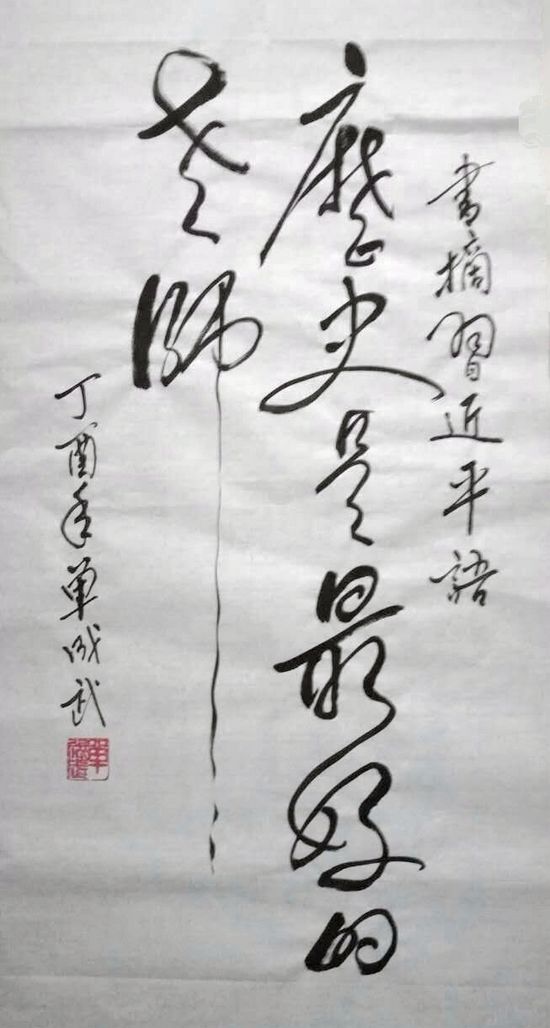 書摘習近平語
歷史是最好的
老師
丁酉年單成武